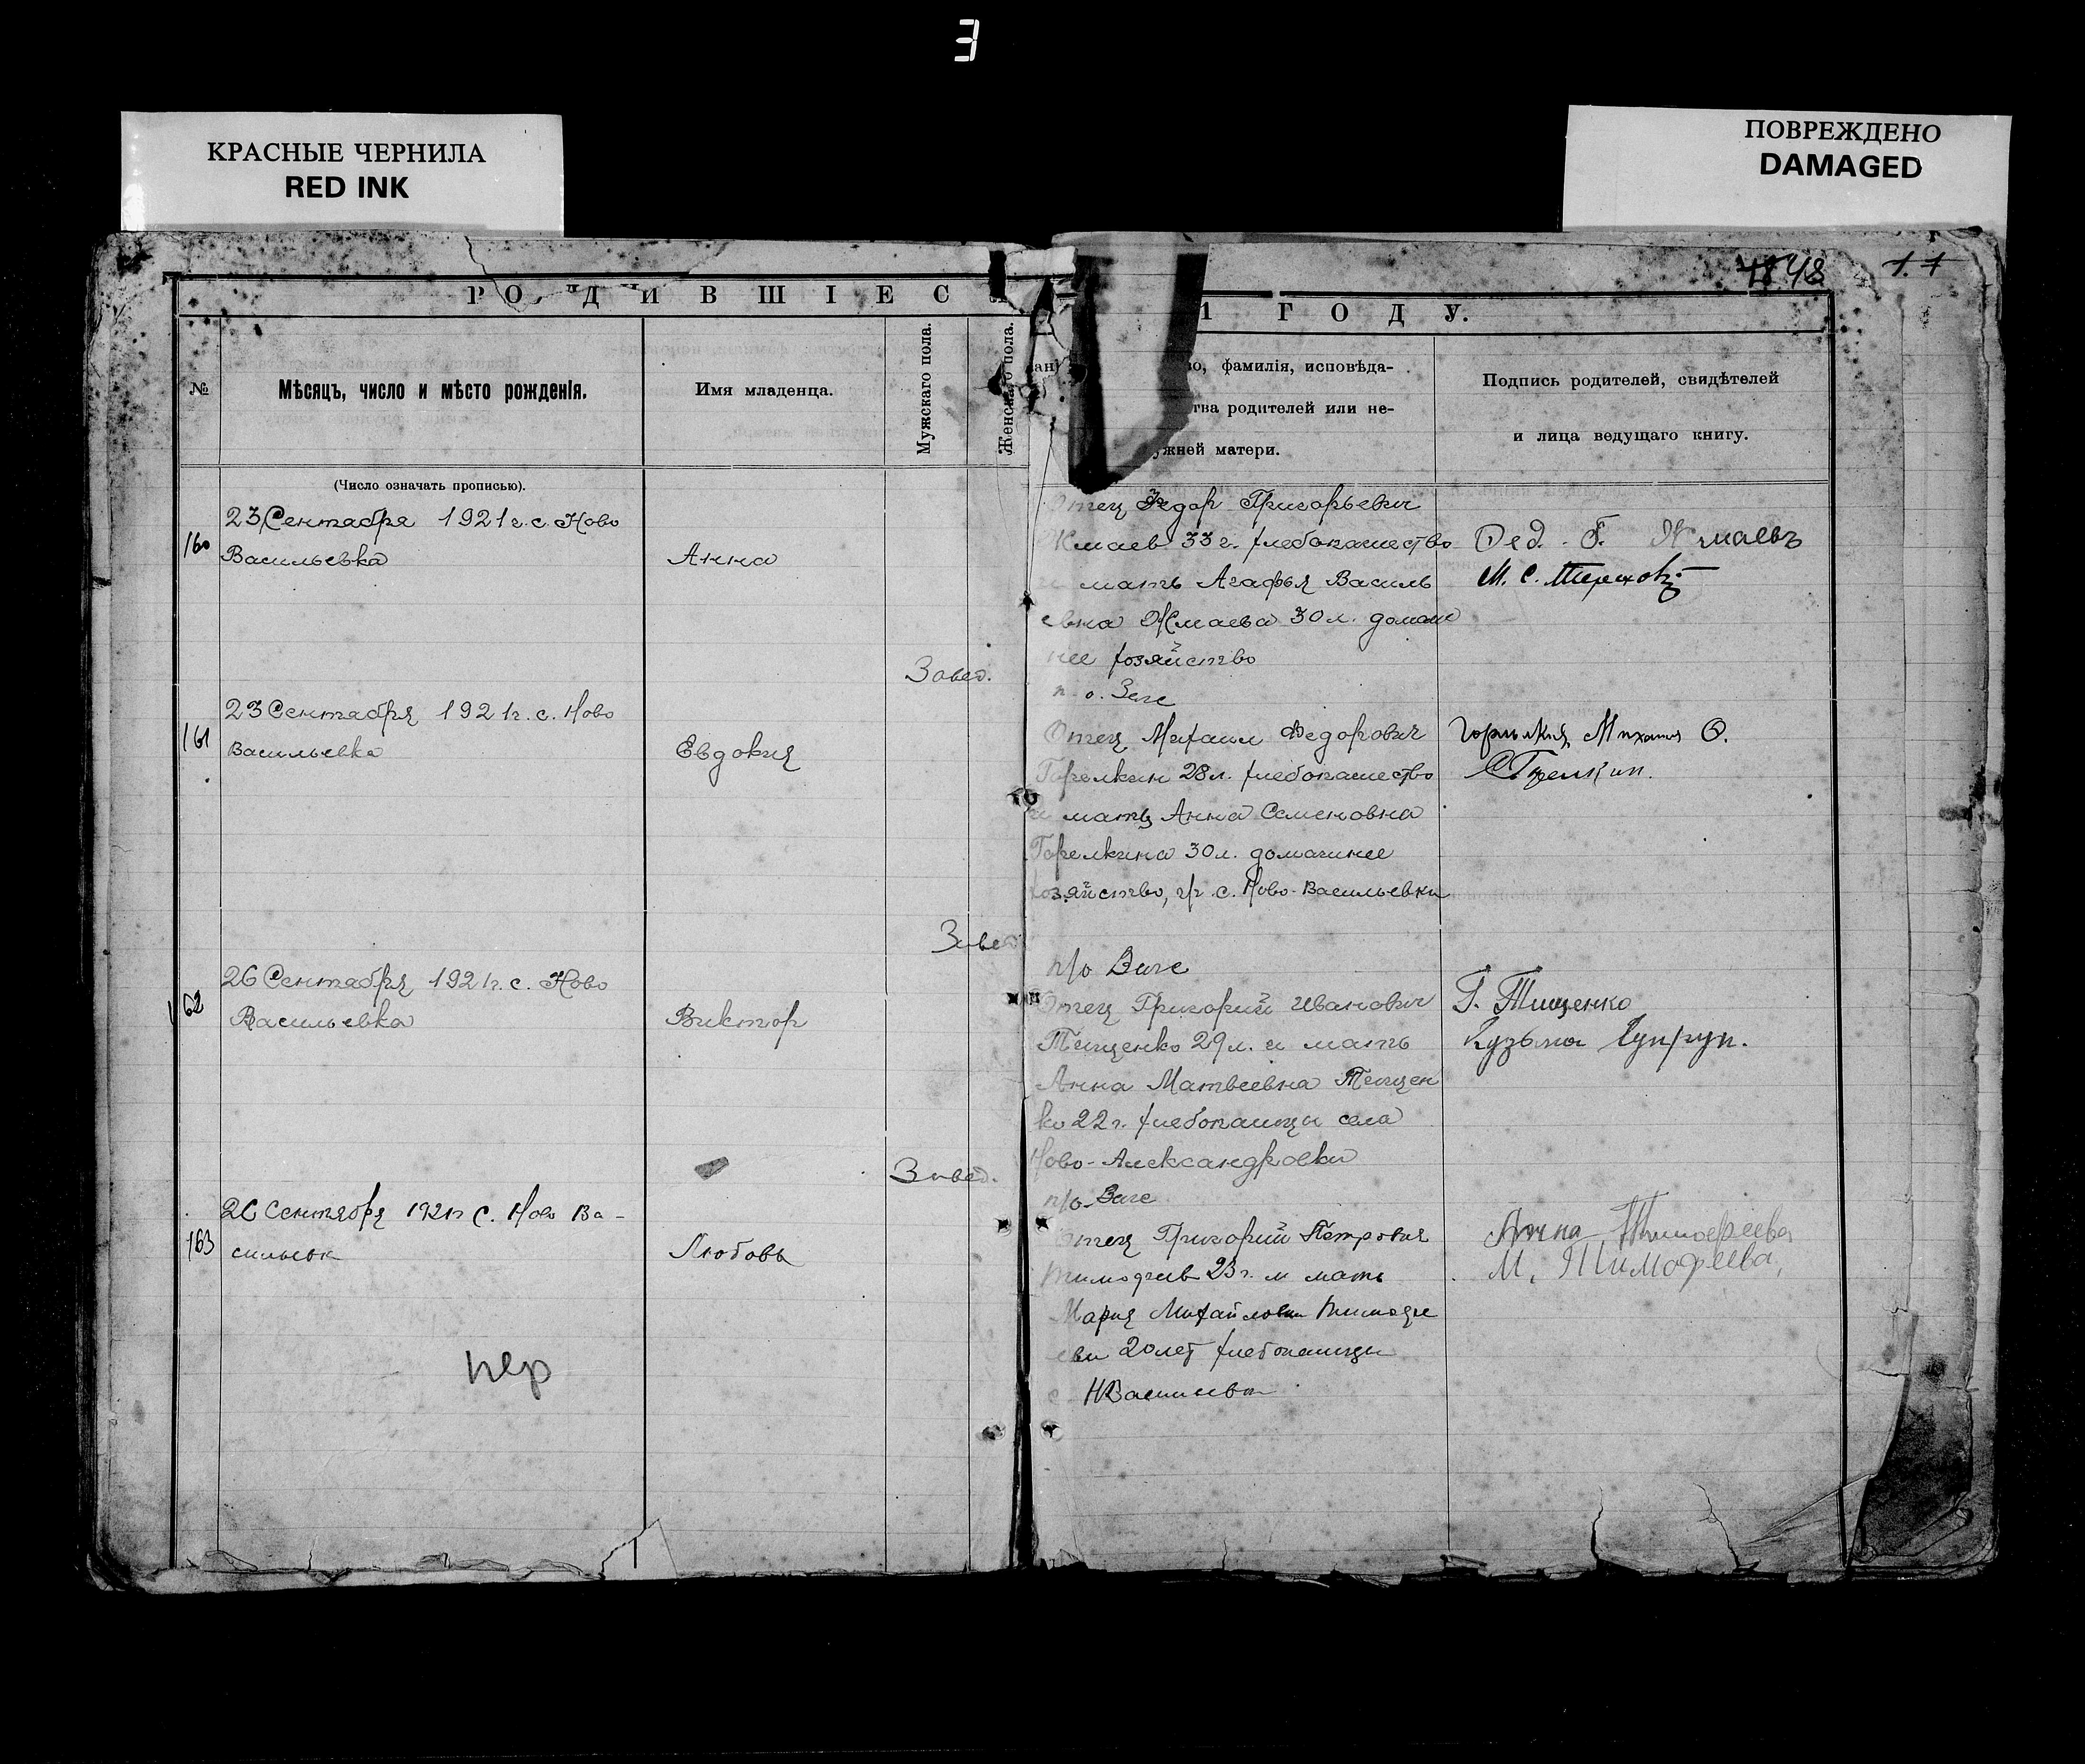 КРАСНЫЕ ЧЕРНИЛА
RED INK
ПОВРЕЖДЕНО
DAMAGED
48
1 ГОДУ.
РОДИВШІЕС
№
Мѣсяцъ, число и мѣсто рожденія.
Имя младенца.
Мужскаго пола.
Женскаго пола.
фамилія, исповѣда-
родителей или не-
матери.
Подпись родителей, свидѣтелей
и лица ведущаго книгу.
(Число означать прописью).
160
23 Сентября 1921 г. с. Ново
Васильевка
Анна
Отец Федор Григорьевич
Жмаев 33 г. хлебопашество
и мать Агафья Василь
евна Жмаева 30 л. домаш
нее хозяйство
Фед. Г. Жмаевъ
М. С.
Завед.
п. о. Загс
161
23 Сентября 1921 г. с. Ново
Васильевка
Евдокия
Отец Михаил Федорович
Горелкин 28 л. хлебопашество
и мать Анна Семеновна
Горелкина 30 л. домашнее
хозяйство, гр. с. Ново-Васильевки
Михаил Ф.
Завед
п/о Загс
162
26 Сентября 1921 г. с. Ново
Васильевка
Виктор
Отец Григорий Иванович
Тищенко 29 л. и мать
Анна Матвеевна Тищен
ко 22 г. хлебопашцы села
Ново-Александровки
Г. Тищенко
Кузьма Супрун.
Завед.
п/о Загс
163
26 Сентября 1921 г с. Ново Ва-
сильевк
Любовь
Отец Григорий Петрович
Тимофеев 23 г. и мать
Мария Михайловна Тимофе
ева 20 лет хлебопашцы
с НВасильевки
Анна Тимофеева
М. Тимофеева,
пер